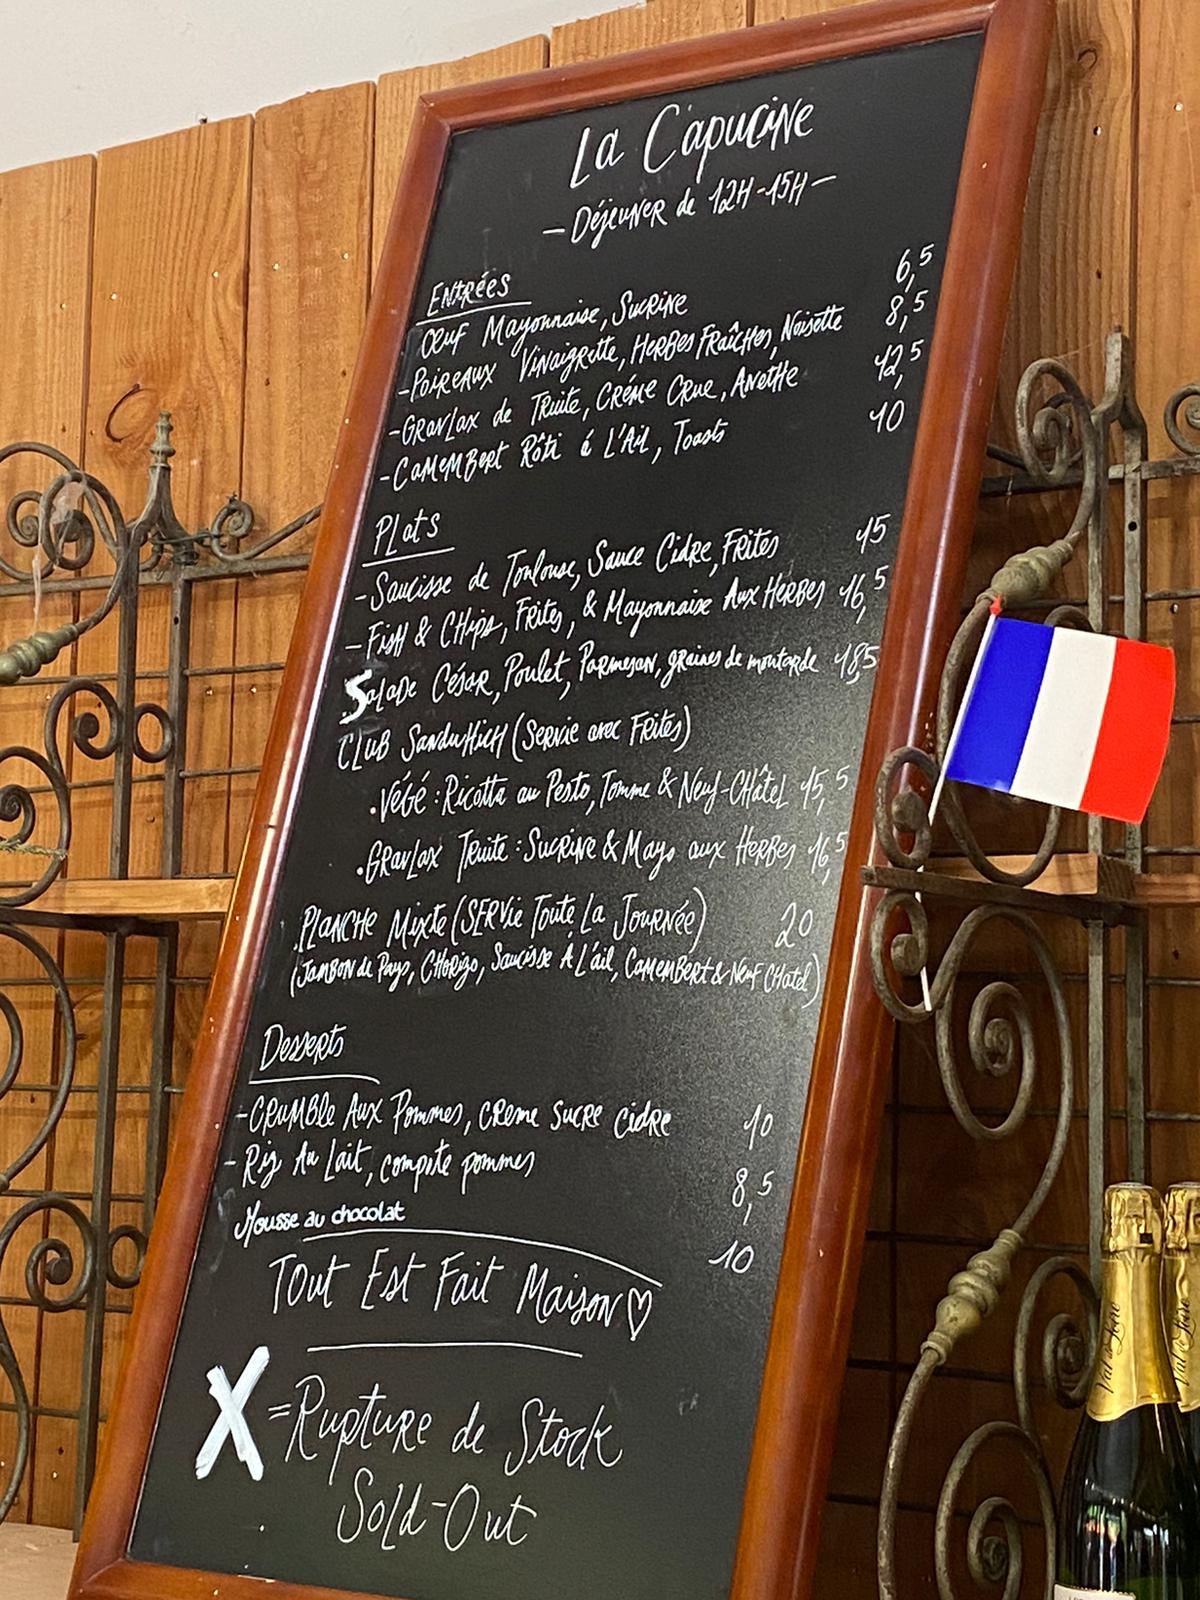 La Capucine
- Déjeuner de 12H-15H -
Entrées
Œuf Mayonnaise, Sucrine 6,5
- Poireaux Vinaigrette, Herbes Fraîches, Noisette 8,5
- Gravlax de Truite, Créme Crue, Anethe 12,5
- Camembert Rôti á L'Ail, Toasts 10
Plats
- Saucisse de Toulouse, Sauce Cidre, Frites 15
- Fish & Chips, Frites, & Mayonnaise Aux Herbes 16,5
. Salade César, Poulet, Parmesan, graines de moutarde 18,5
Club Sandwhich (Servie avec Frites)
. Végé : Ricotta au Pesto, Tomme & Neuf-Châtel 15,5
. Gravlax Truite : Sucrine & Mayo aux Herbes 16,5
. Planche Mixte (Servie Toute La Journée) 20
(Jambon de Pays, Chorizo, Saucisse À L'ail, Camembert & Neuf Chatel)
Desserts
- Crumble Aux Pommes, creme sucre cidre 10
- Riz Au Lait, compote pommes 8,5
Mousse au chocolat 10
Tout Est Fait Maison ♡
X = Rupture de Stock
Sold-Out